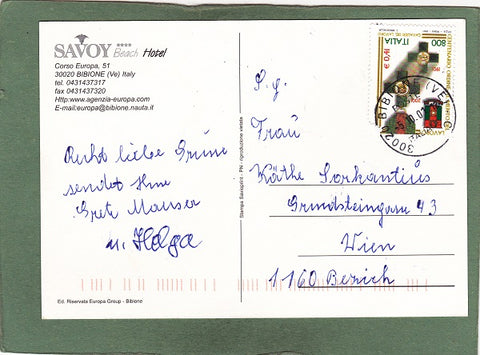 SAVOY **** Beach Hotel
Corso Europa, 51
30020 BIBIONE (Ve) Italy
tel. 0431437317
fax 0431437320
Http:www.agenzia-europa.com
E-mail:europa@bibione.nauta.it
Recht liebe Grüsse
sendet Ihne
Grete Manser
u. Helga
Ed. Riservata Europa Group - Bibione
Stampa Saxaprint - PN - riproduzione vietata
ITALIA
800
€ 0,41
30020 BIBIONE (VE)
S. g.
Frau
Käthe Sorkantius
Grundsteingasse 43
Wien
1160 Bezirk